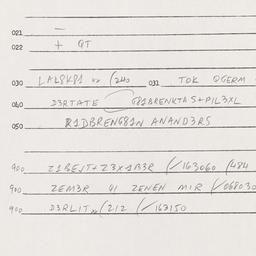 021 —
022 + QT
030 LAL8K81 031 TOK QGERM
040 D3RTATE G81BRENKTA S+PIL3XL
050 R1DBRENG81N ANAND3RS
900 Z1BEJT+Z3X1B3R (/163060 (484
900 ZEM3R VI ZENEN MIR (/068030
900 D3RLIT (212 (/163150